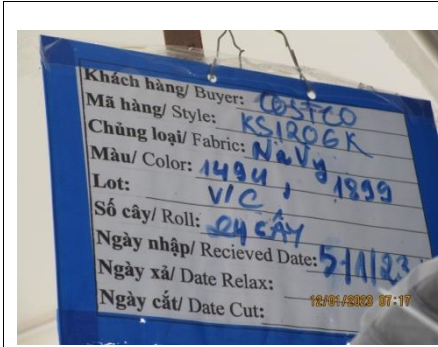 Khách hàng/ Buyer: COSTCO
Mã hàng/ Style: KS1206K
Chủng loại/ Fabric: Navy
Màu/ Color: 1494, 1899
Lot: V/C
Số cây/ Roll: 04 CÂY
Ngày nhập/ Recieved Date: 5/1/23
Ngày xả/ Date Relax:
Ngày cắt/ Date Cut:
12/01/2023 07:17